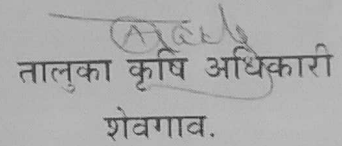 तालुका कृषि अधिकारी
शेवगाव.